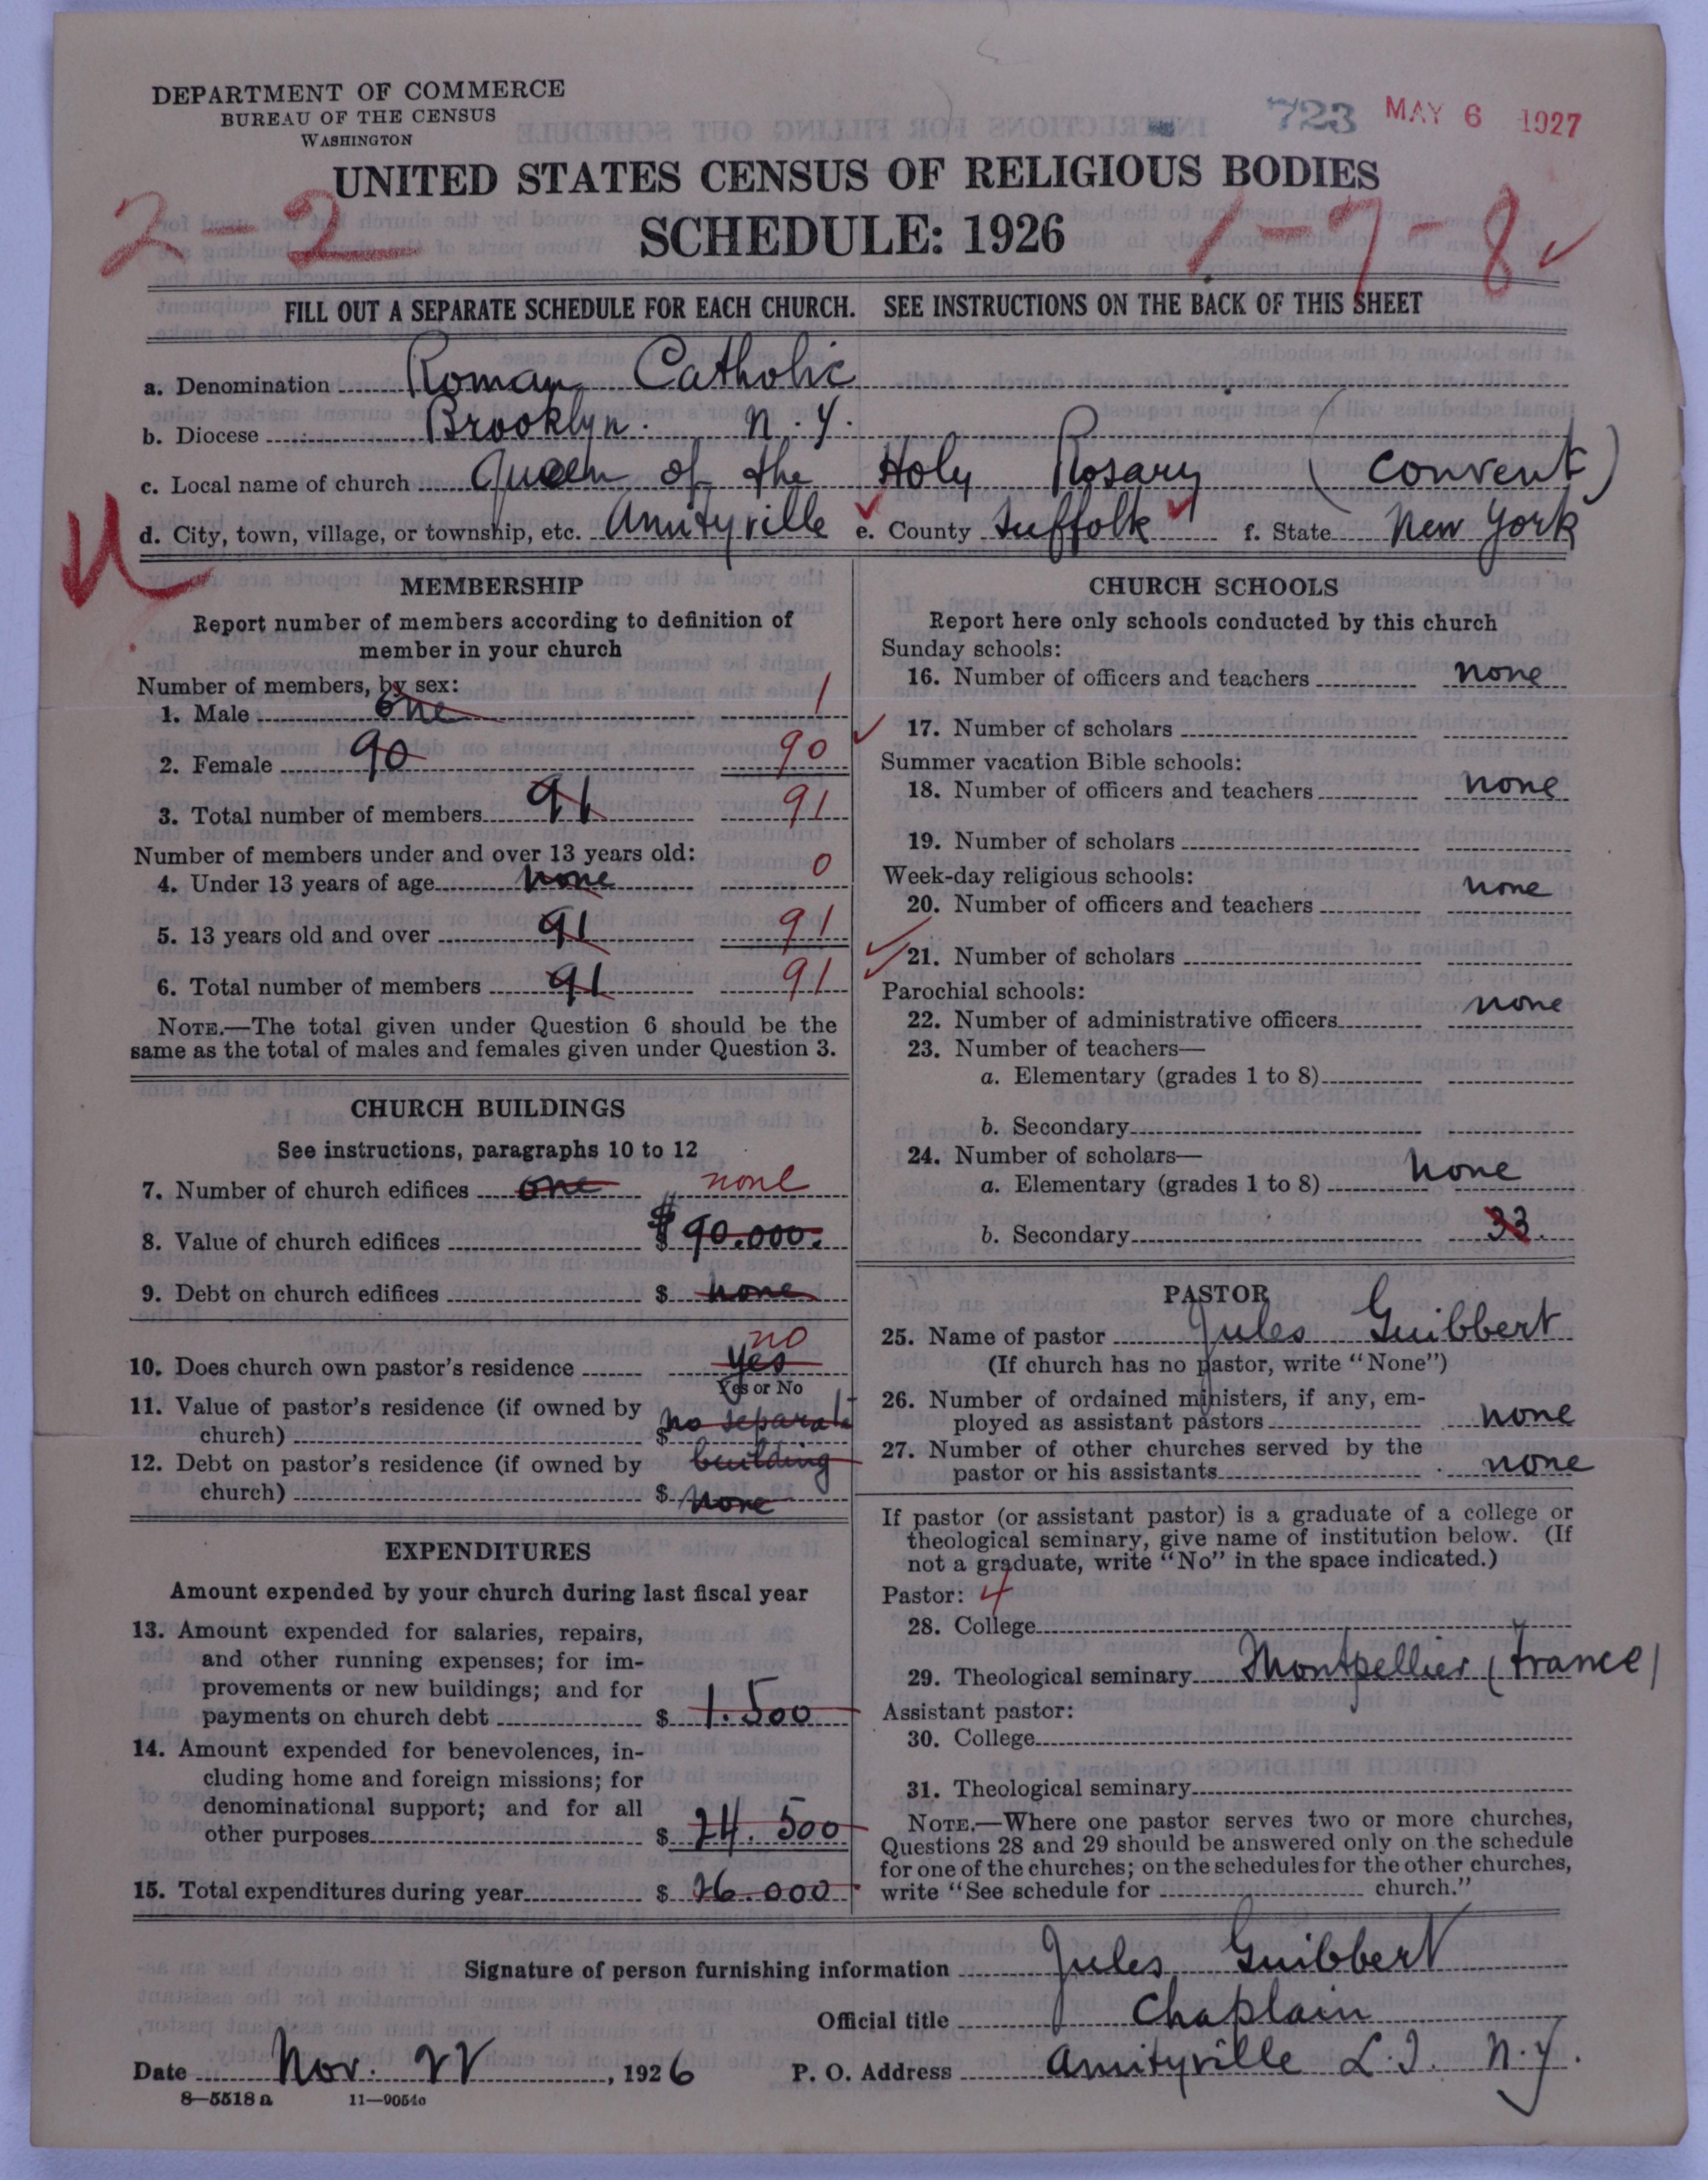 DEPARTMENT OF COMMERCE
BUREAU OF THE CENSUS
WASHINGTON
723 MAY 6 1927
UNITED STATES CENSUS OF RELIGIOUS BODIES
2-2 SCHEDULE: 1926 1-7-8
FILL OUT A SEPARATE SCHEDULE FOR EACH CHURCH. SEE INSTRUCTIONS ON THE BACK OF THIS SHEET
a. Denomination Roman Catholic
b. Diocese Brooklyn. N.Y.
c. Local name of church Queen of the Holy Rosary (Convent)
d. City, town, village, or township, etc. Amityville e. County Suffolk f. State New York
MEMBERSHIP
Report number of members according to definition of
member in your church
Number of members, by sex:
1. Male one 1
2. Female 90 90
3. Total number of members 91 91
Number of members under and over 13 years old:
4. Under 13 years of age none 0
5. 13 years old and over 91 91
6. Total number of members 91 91
NOTE.—The total given under Question 6 should be the
same as the total of males and females given under Question 3.
CHURCH BUILDINGS
See instructions, paragraphs 10 to 12
7. Number of church edifices one none
8. Value of church edifices $ 90.000.
9. Debt on church edifices $ none
no
10. Does church own pastor's residence yes
Yes or No
11. Value of pastor's residence (if owned by
church) $ no separate
12. Debt on pastor's residence (if owned by building
church) $ none
EXPENDITURES
Amount expended by your church during last fiscal year
13. Amount expended for salaries, repairs,
and other running expenses; for im-
provements or new buildings; and for
payments on church debt $ 1.500
14. Amount expended for benevolences, in-
cluding home and foreign missions; for
denominational support; and for all
other purposes $ 24.500
15. Total expenditures during year $ 26.000
CHURCH SCHOOLS
Report here only schools conducted by this church
Sunday schools:
16. Number of officers and teachers none
17. Number of scholars
Summer vacation Bible schools:
18. Number of officers and teachers none
19. Number of scholars
Week-day religious schools:
20. Number of officers and teachers none
21. Number of scholars
Parochial schools:
22. Number of administrative officers none
23. Number of teachers—
a. Elementary (grades 1 to 8)
b. Secondary
24. Number of scholars—
a. Elementary (grades 1 to 8) none
b. Secondary 33.
PASTOR
25. Name of pastor Jules Guibbert
(If church has no pastor, write "None")
26. Number of ordained ministers, if any, em-
ployed as assistant pastors none
27. Number of other churches served by the
pastor or his assistants none
If pastor (or assistant pastor) is a graduate of a college or
theological seminary, give name of institution below. (If
not a graduate, write "No" in the space indicated.)
Pastor: 4
28. College
29. Theological seminary Montpellier (France)
Assistant pastor:
30. College
31. Theological seminary
NOTE.—Where one pastor serves two or more churches,
Questions 28 and 29 should be answered only on the schedule
for one of the churches; on the schedules for the other churches,
write "See schedule for church."
Signature of person furnishing information Jules Guibbert
Official title Chaplain
Date Nov. 22, 1926 P. O. Address Amityville L.I. N.Y.
8—5518a 11—9054c